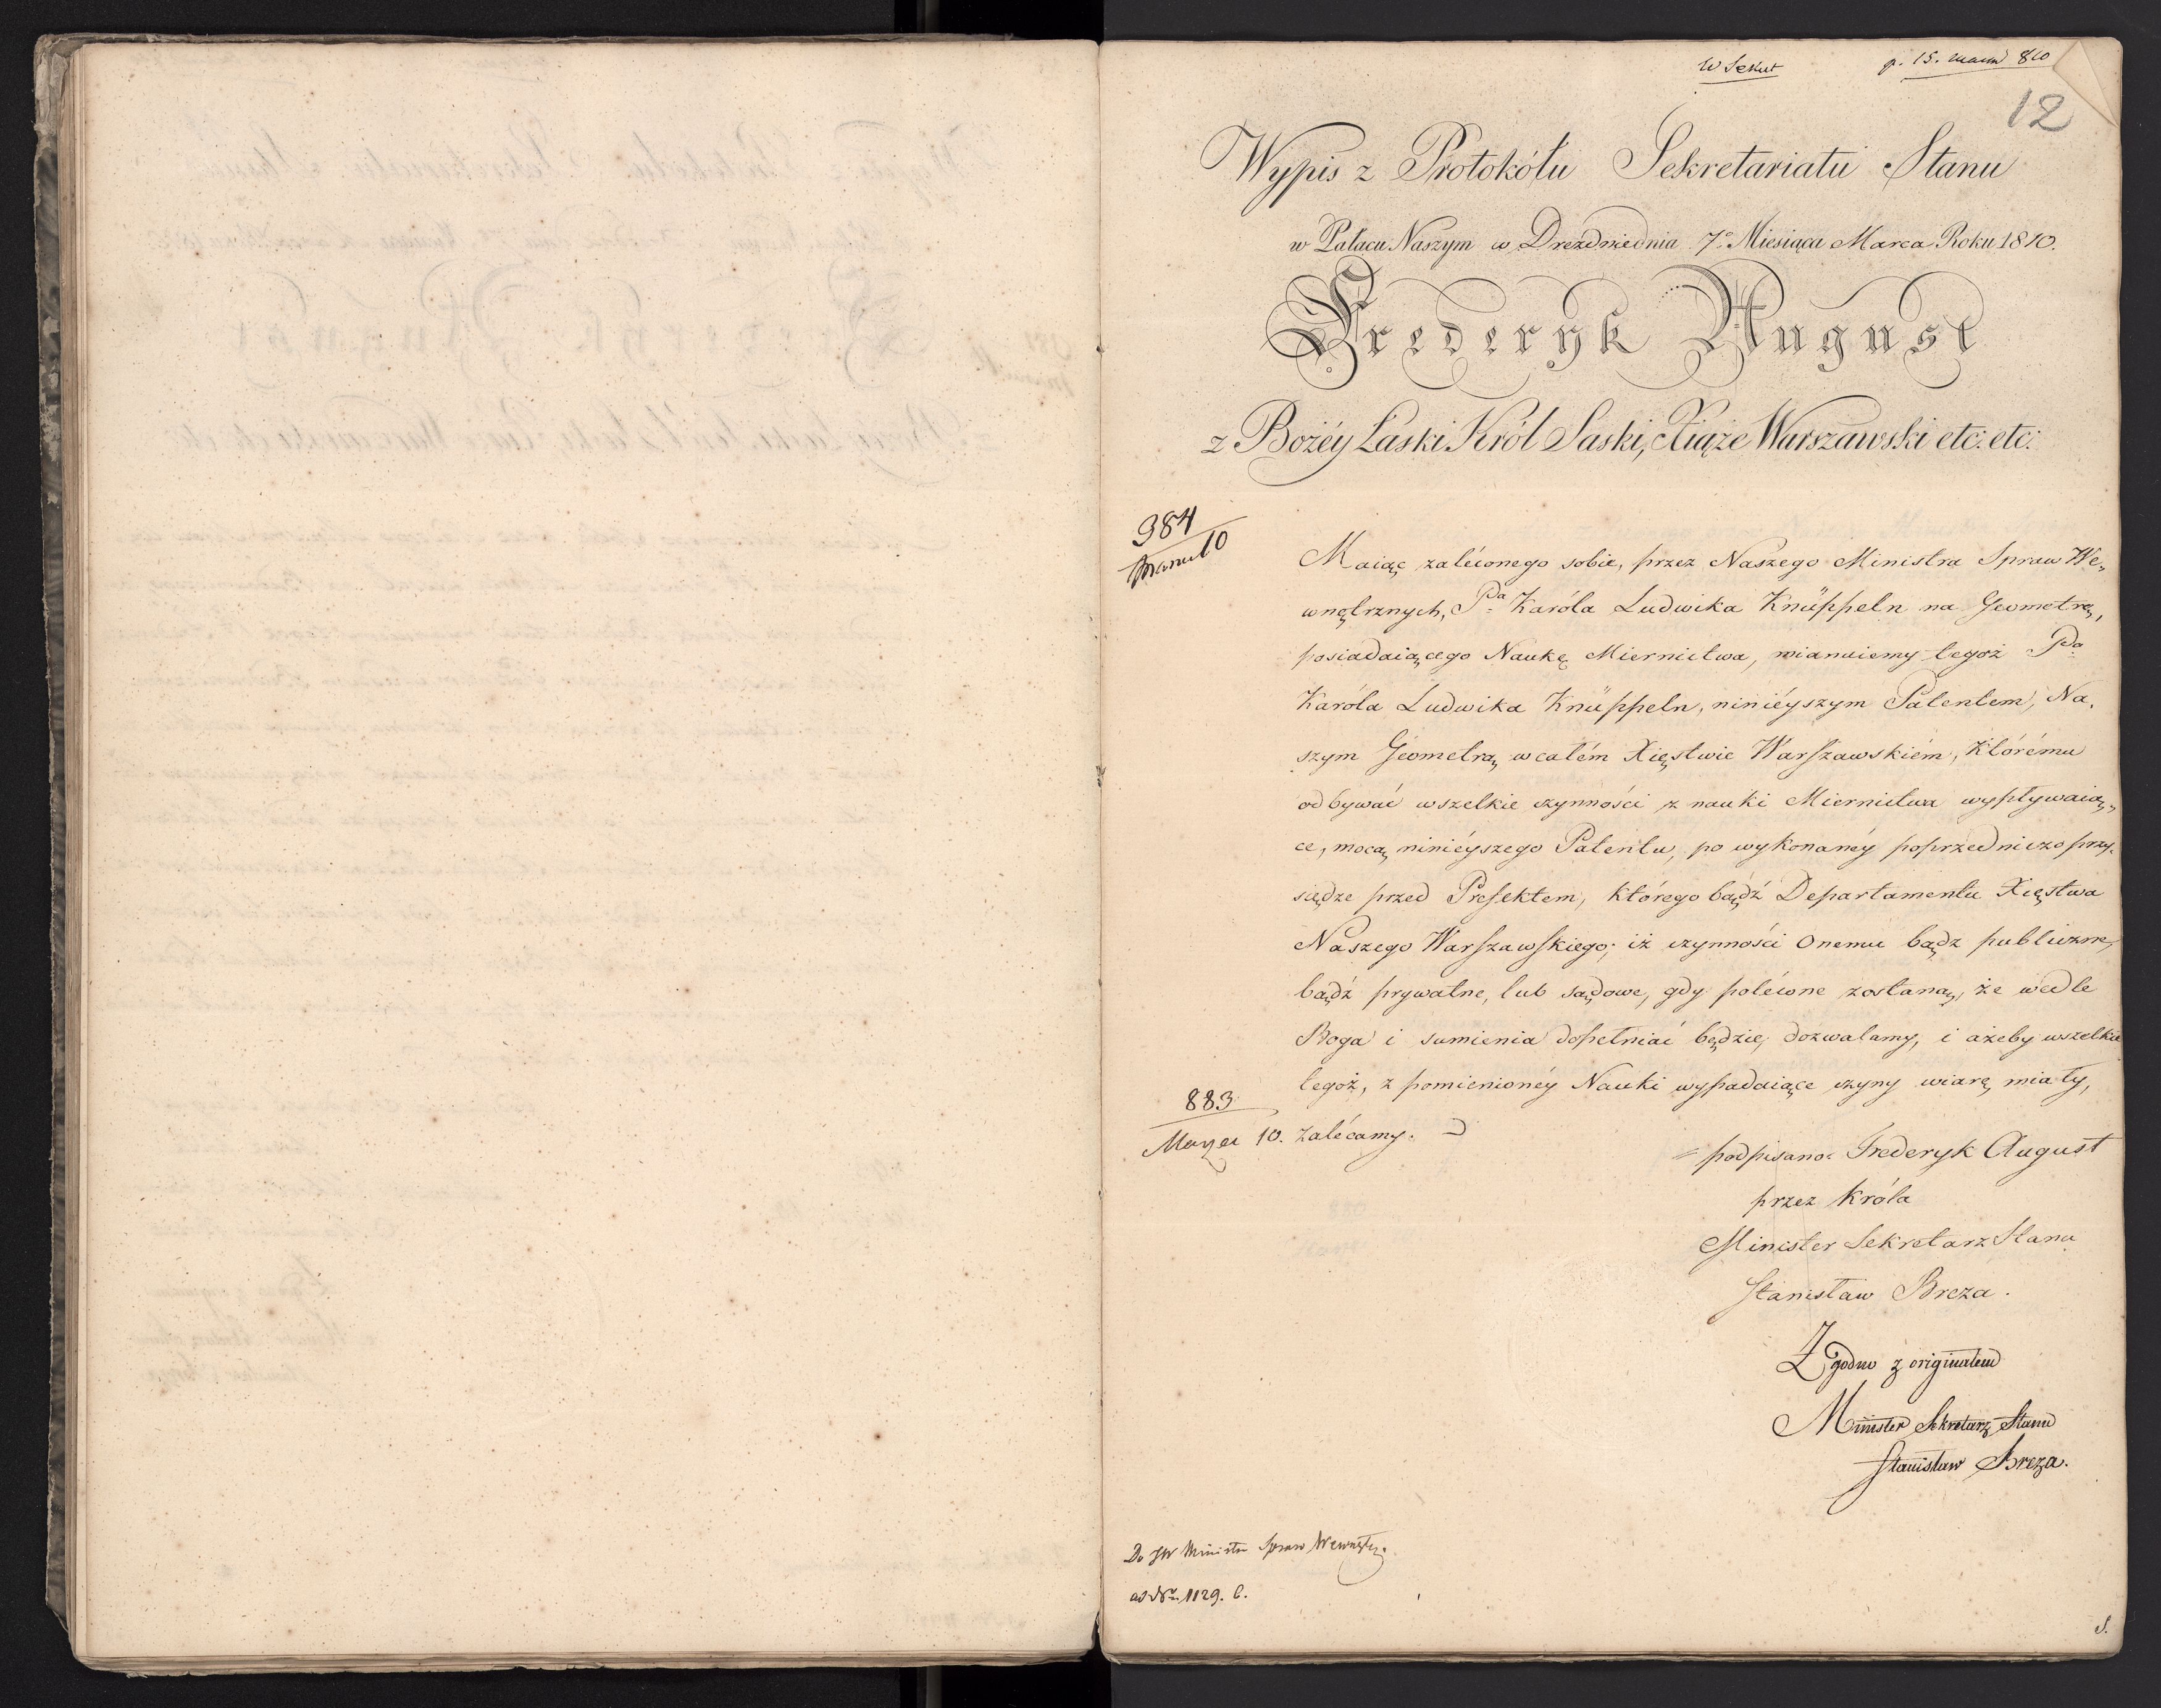 W Sekret
p. 15. marca 810
12
Wypis z Protokółu Sekretariatu Stanu
w Pałacu Naszym w Dreźdnie dnia 7º Miesiąca Marca Roku 1810.
Frederyk August
z Bożéy Łaski Król Saski, Xiąże Warszawski etc: etc:
984
10
Maiąc zaléconego sobie, przez Naszego Ministra Spraw We„
wnętrznych, Pa Karóla Ludwika Knüppeln na Geometrę,
posiadaiącego Naukę Miernictwa, mianuiemy tegoż Pa
Karóla Ludwika Knüppeln, ninieyszym Patentem, Na„
szym Geometrą, w całém Xięstwie Warszawskiém, którému
odbywać wszelkie czynności z nauki Miernictwa wypływaią„
ce, mocą ninieyszego Patentu, po wykonanéy poprzedniczo przy„
siędze przed Prefektem, którego bądź Departamentu Xięstwa
Naszego Warszawskiego; iż czynności onemu bądz publiczne,
bądź prywatne, lub sądowe, gdy polécone zostaną, że wedle
Boga i sumienia dopełniać będzie, dozwalamy, i ażeby wszelkie
tegoż, z pomienionéy Nauki wypadaiące czyny wiarę miały,
883
Marca 10.
zalécamy.
= podpisano = Frederyk August
przez Króla
Minister Sekretarz Stanu
Stanisław Breza.
Zgodno z originałem
Minister Sekretarz Stanu
Stanisław Breza.
Do JW Ministra Spraw Wewnętrz.
ad Nrm 1129. C.
S.